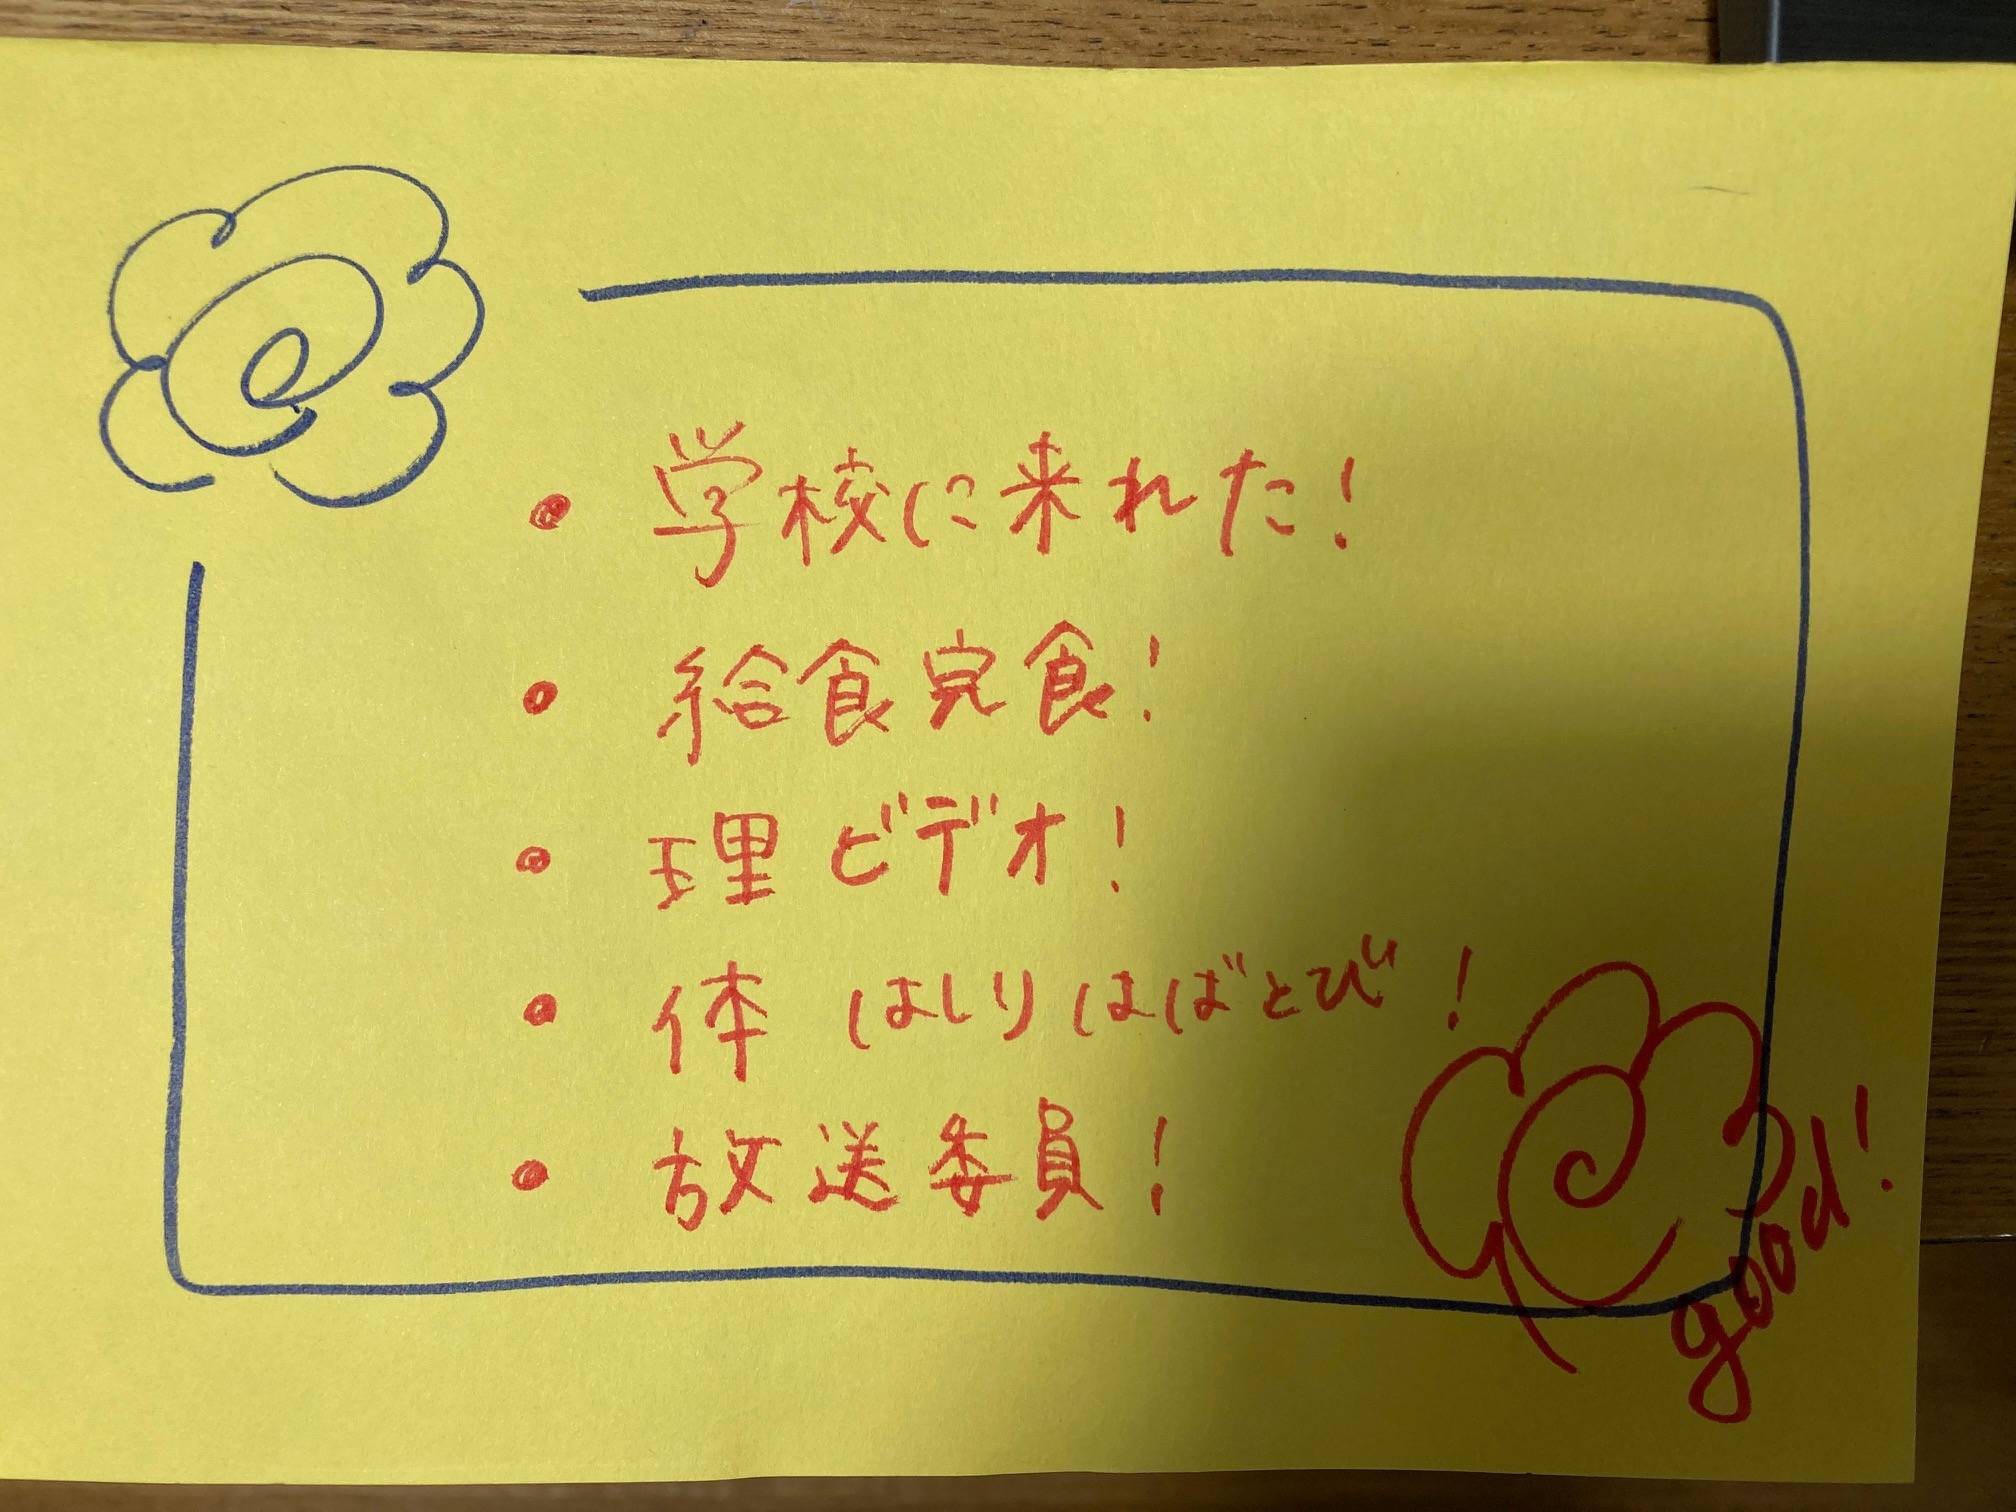 ・学校に来れた!
・給食完食!
・理 ビデオ!
・体 はしりはばとび!
・放送委員!
good!